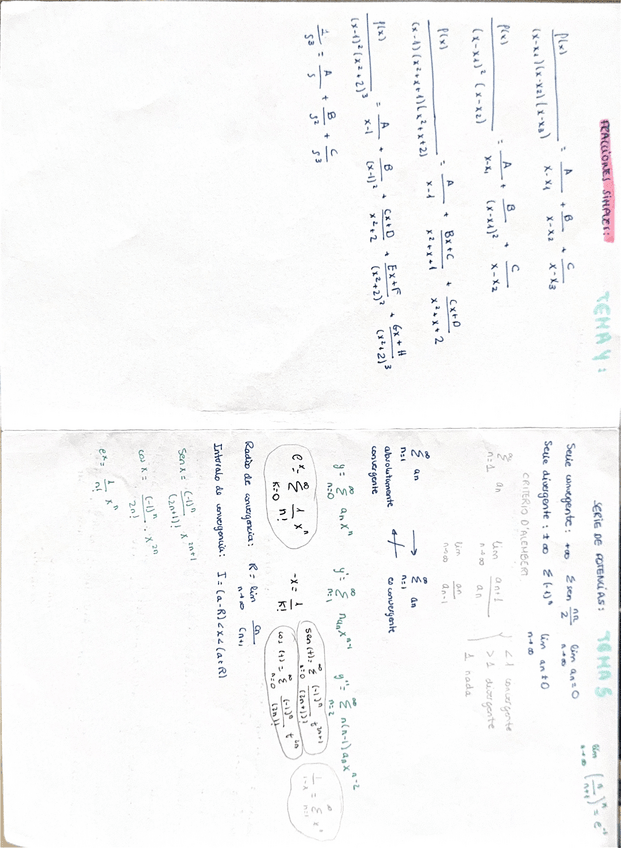 FRACCIONES SIMPLES: TEMA 4:
P(x) / (x-x1)(x-x2)(x-x3) = A/(x-x1) + B/(x-x2) + C/(x-x3)
P(x) / (x-x1)² (x-x2) = A/(x-x1) + B/(x-x1)² + C/(x-x2)
P(x) / (x-1)(x²+x+1)(x²+x+2) = A/(x-1) + Bx+C/(x²+x+1) + Cx+D/(x²+x+2)
P(x) / (x-1)²(x²+2)³ = A/(x-1) + B/(x-1)² + Cx+D/(x²+2) + Ex+F/(x²+2)² + Gx+H/(x²+2)³
1/s³ = A/s + B/s² + C/s³
SERIE DE POTENCIAS: TEMA 5
lim n→∞ (n/(n+1))^n = e^-1
Serie convergente: +∞, Σ sen nπ/2 lim n→∞ an = 0
Serie divergente: ±∞ Σ(-1)^n lim n→∞ an ≠ 0
CRITERIO D'ALEMBERT
∞ Σ n=1 an lim n→∞ an+1/an < 1 convergente
lim n→∞ an/an-1 > 1 divergente
1 nada
∞ Σ n=1 an → ∞ Σ n=1 an
absolutamente convergente es convergente
y = ∞ Σ n=0 an x^n y' = ∞ Σ n=1 n an x^n-1 y'' = ∞ Σ n=2 n(n-1) an x^n-2
e^x = ∞ Σ k=0 1/n! x^n -x = 1/k! sen(t) = ∞ Σ n=0 (-1)^n/(2n+1)! t^2n+1
cos(t) = ∞ Σ n=0 (-1)^n/(2n)! t^2n
Radio de convergencia: R = lim n→∞ cn/cn+1
Intervalo de convergencia: I = (a-R) < x < (a+R)
sen x = (-1)^n/(2n+1)! · x^2n+1
cos x = (-1)^n/2n! · x^2n
e^x = 1/n! x^n